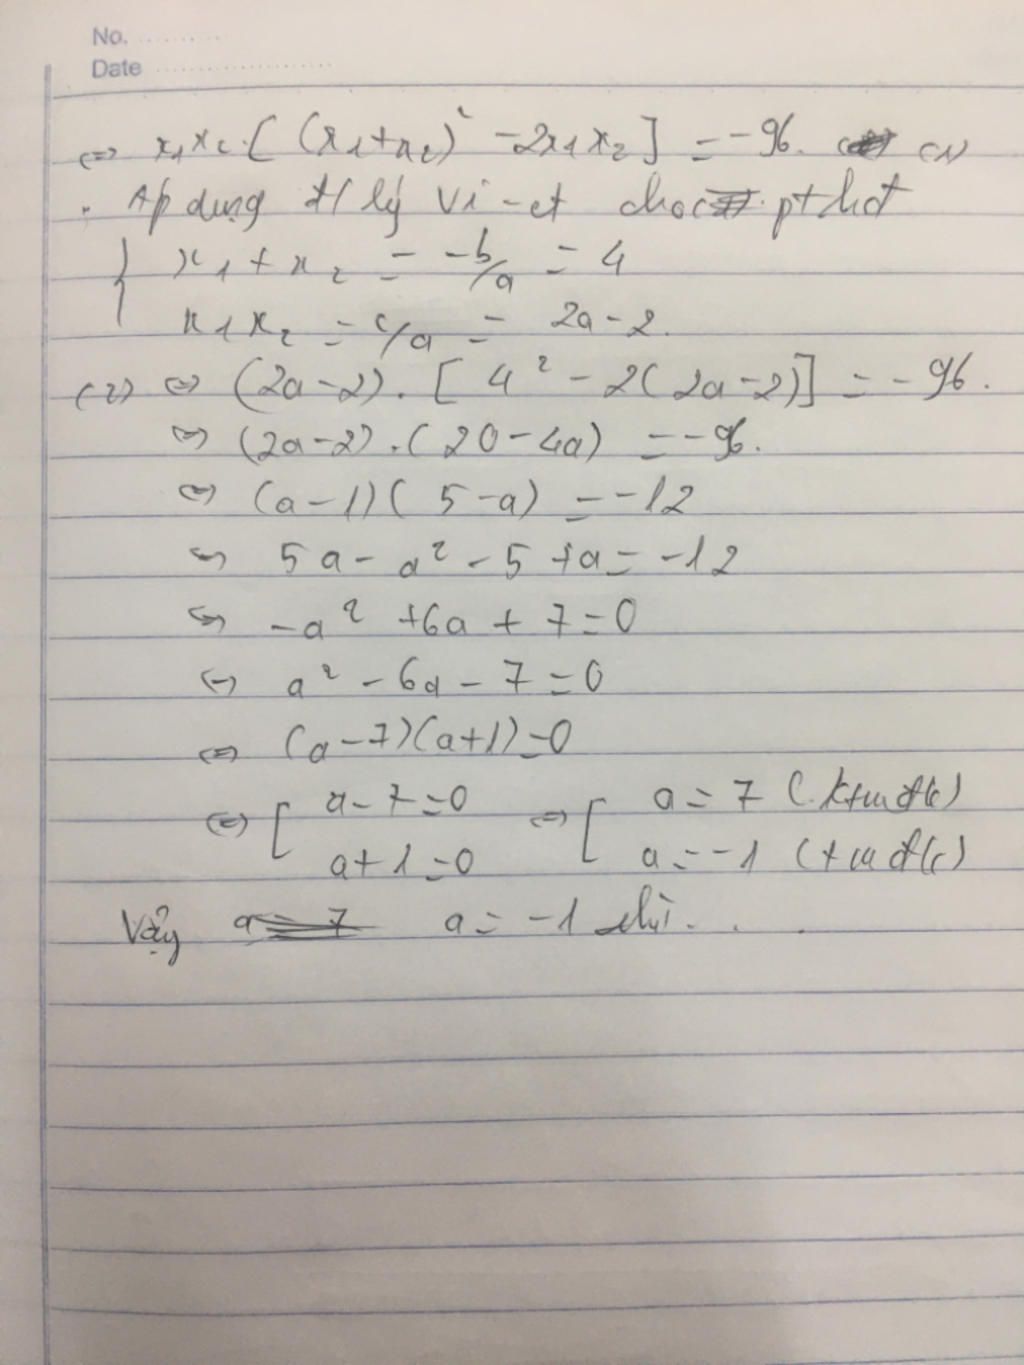 No. ..........
Date ....................
⇔ x₁x₂.[ (x₁+x₂)² -2x₁x₂] = -96. (1)
. Áp dụng đ/ lý Vi-et cho pt hđt
{ x₁ + x₂ = -b/a = 4
x₁x₂ = c/a = 2a-2.
(2) ⇔ (2a-2).[ 4² - 2(2a-2)] = -96.
⇔ (2a-2).(20-4a) = -96.
⇔ (a-1)( 5-a) = -12
⇔ 5a - a² - 5 +a = -12
⇔ -a² +6a + 7 = 0
⇔ a² - 6a - 7 = 0
⇔ (a-7)(a+1)=0
⇔ [ a-7=0 ⇔ [ a = 7 (ktm đk)
a+1=0 a = -1 (tm đk)
Vậy a = -1 thì. . .